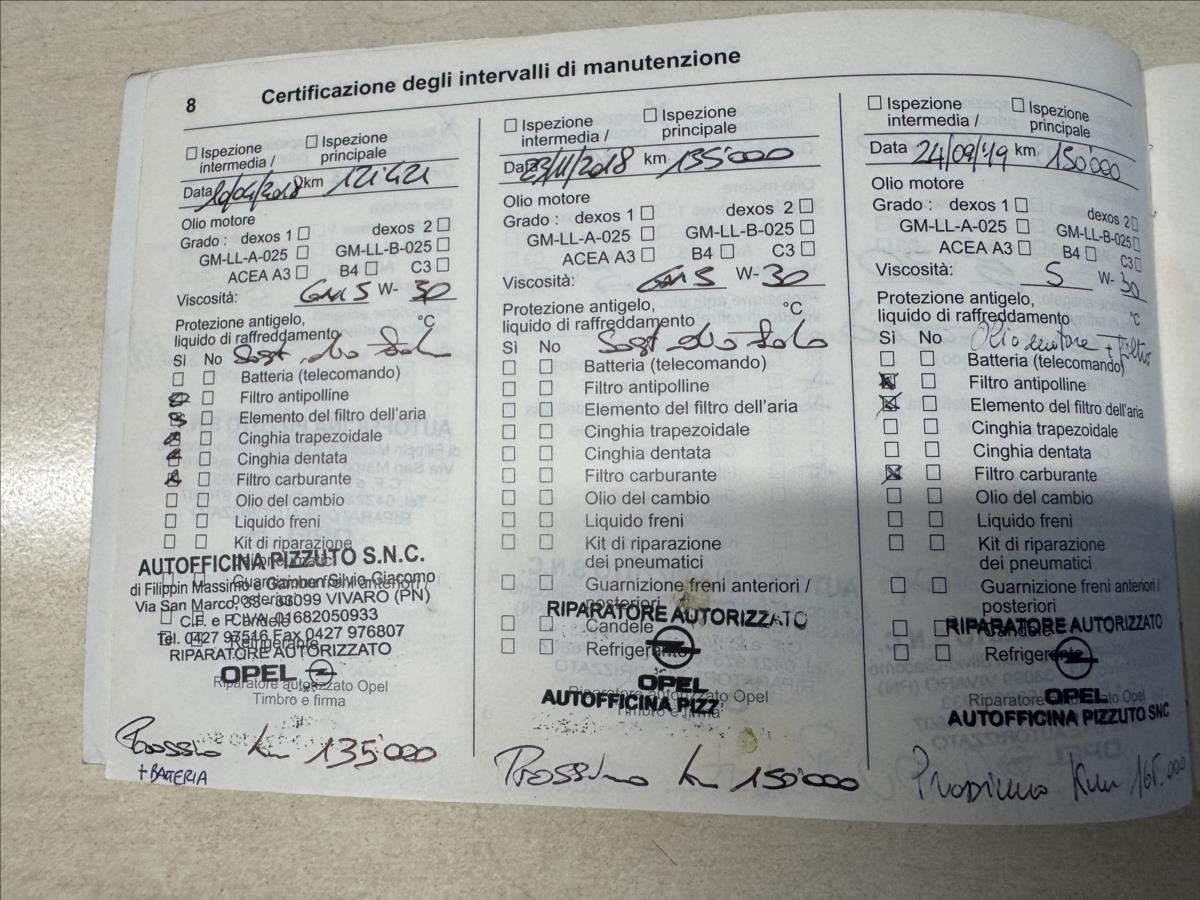 8
Certificazione degli intervalli di manutenzione
Ispezione intermedia /
Ispezione principale
Data 10/04/2018 km 121421
Olio motore
Grado : dexos 1 dexos 2
GM-LL-A-025 GM-LL-B-025
ACEA A3 B4 C3
Viscosità: GM 5 W- 30
Protezione antigelo,
liquido di raffreddamento °C
Sì No Sost. olio Solo
Batteria (telecomando)
Filtro antipolline
Elemento del filtro dell'aria
Cinghia trapezoidale
Cinghia dentata
Filtro carburante
Olio del cambio
Liquido freni
Kit di riparazione
AUTOFFICINA PIZZUTO S.N.C.
di Filippin Massimo e Gamberi Silvio Giacomo
Via San Marco, 38 - 33099 VIVARO (PN)
C.F. e P. IVA 01682050933
Tel. 0427 97516 Fax 0427 976807
RIPARATORE AUTORIZZATO
OPEL
Riparatore autorizzato Opel
Timbro e firma
Prossimo Km 135'000
+ BATTERIA
Ispezione intermedia /
Ispezione principale
Data 23/11/2018 km 135'000
Olio motore
Grado : dexos 1 dexos 2
GM-LL-A-025 GM-LL-B-025
ACEA A3 B4 C3
Viscosità: GM 5 W- 30
Protezione antigelo,
liquido di raffreddamento °C
Sì No Sost olio Solo
Batteria (telecomando)
Filtro antipolline
Elemento del filtro dell'aria
Cinghia trapezoidale
Cinghia dentata
Filtro carburante
Olio del cambio
Liquido freni
Kit di riparazione
dei pneumatici
Guarnizione freni anteriori /
posteriori
RIPARATORE AUTORIZZATO
Candele
Refrigerante
OPEL
Riparatore autorizzato Opel
AUTOFFICINA PIZZ
Timbro e firma
Prossimo Km 150'000
Ispezione intermedia /
Ispezione principale
Data 24/09/'19 km 150'000
Olio motore
Grado : dexos 1 dexos 2
GM-LL-A-025 GM-LL-B-025
ACEA A3 B4 C3
Viscosità: 5 W- 30
Protezione antigelo,
liquido di raffreddamento °C
Sì No Olio motore + Filtro
Batteria (telecomando)
Filtro antipolline
Elemento del filtro dell'aria
Cinghia trapezoidale
Cinghia dentata
Filtro carburante
Olio del cambio
Liquido freni
Kit di riparazione
dei pneumatici
Guarnizione freni anteriori /
posteriori
RIPARATORE AUTORIZZATO
Candele
Refrigerante
OPEL
Riparatore autorizzato Opel
AUTOFFICINA PIZZUTO SNC
Prossimo Km 165.000